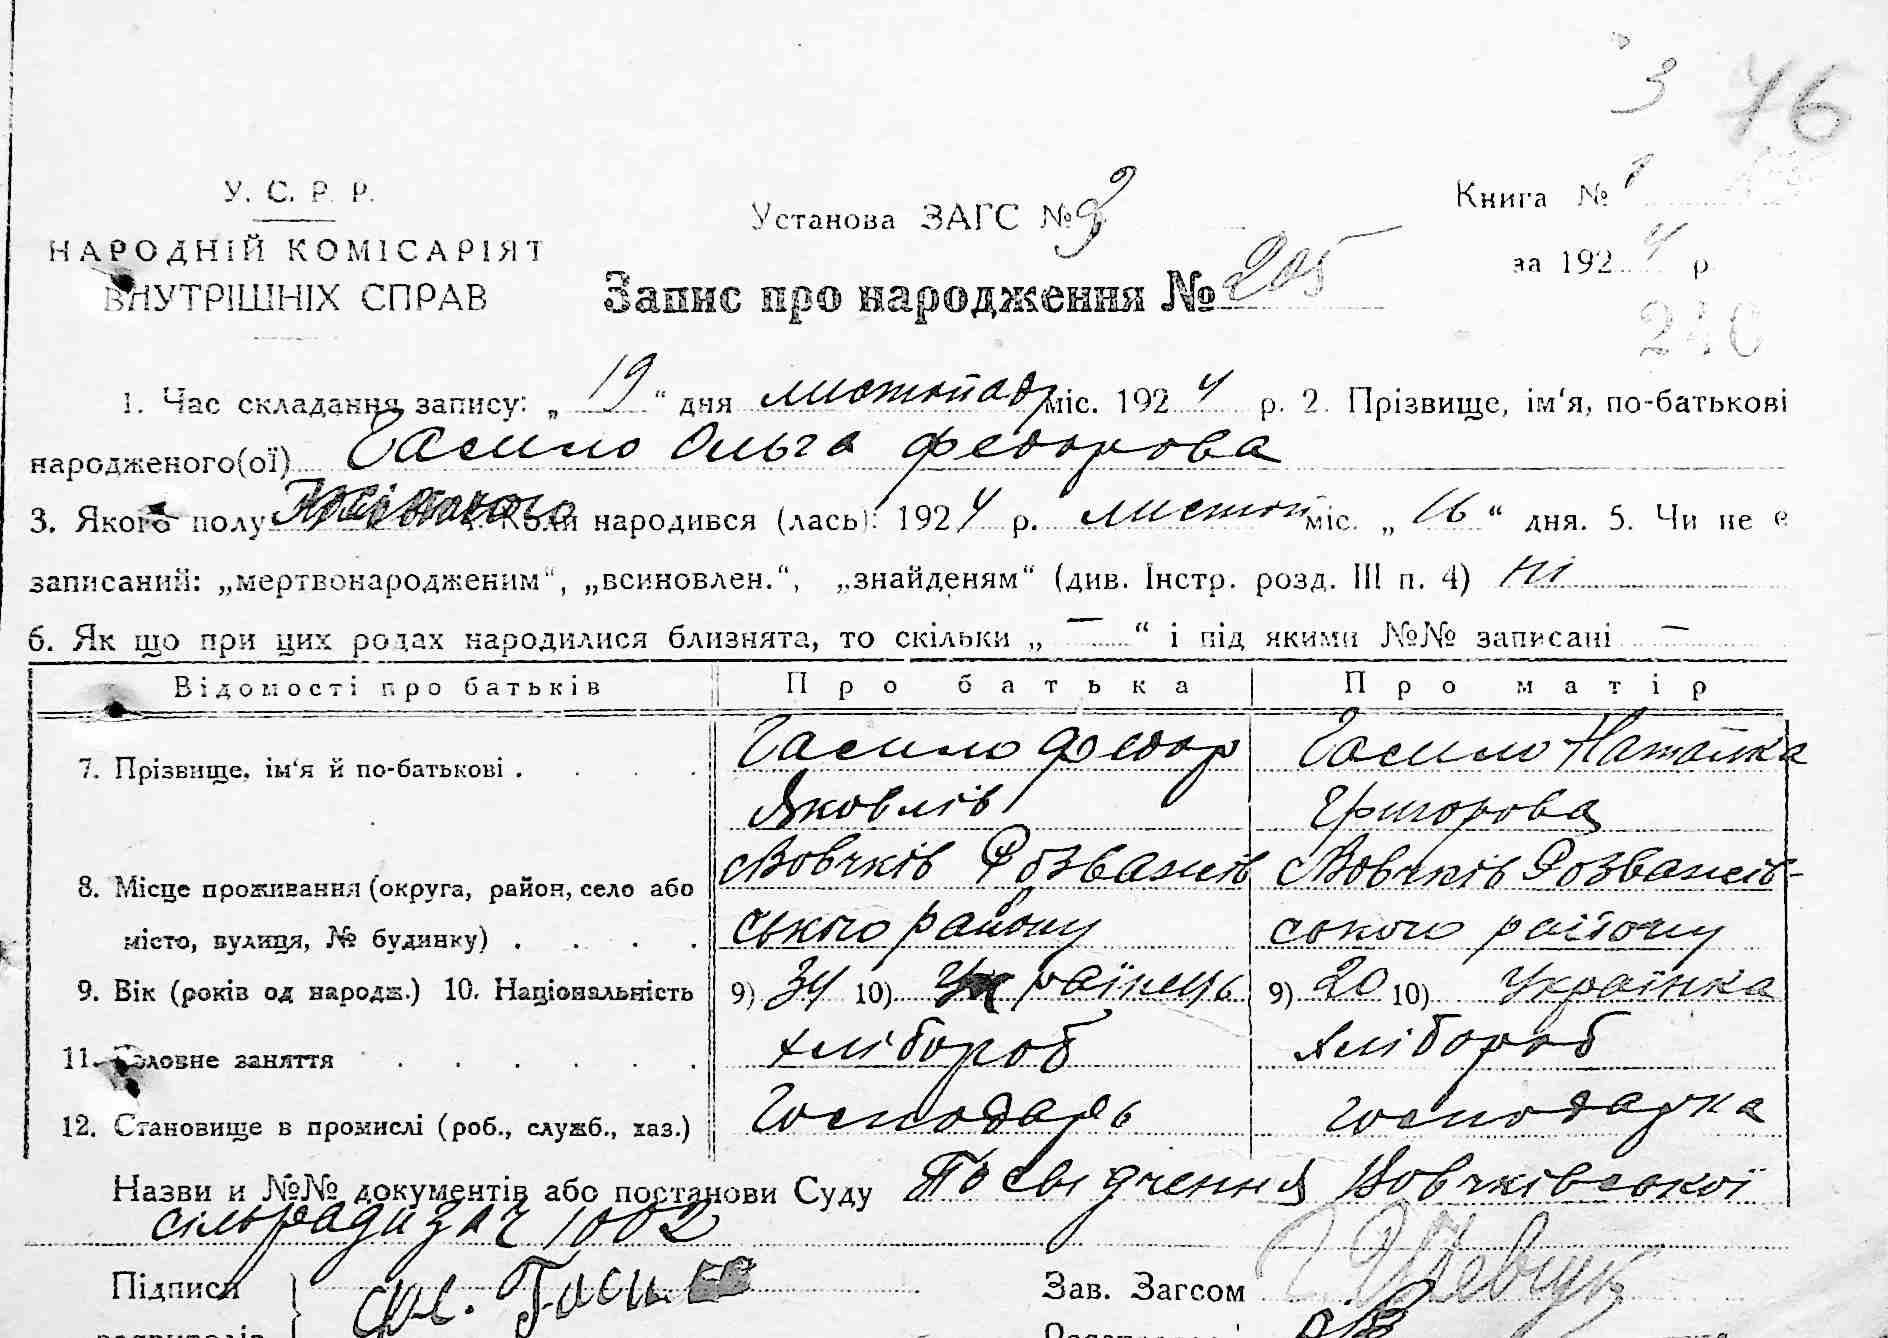 3 76
У. С. Р. Р.
НАРОДНІЙ КОМІСАРІЯТ
ВНУТРІШНІХ СПРАВ
Установа ЗАГС №
Книга №
за 1924 р.
Запис про народження № 205
240
1. Час складання запису: „ 19 “ дня листопад міс. 1924 р. 2. Прізвище, ім‘я, по-батькові
народженого(ої) Гасило Ольга Федорова
3. Якого полу Коли народився (лась): 1924 р. листоп міс. „ 16 “ дня. 5. Чи не є
записаний: „мертвонародженим“, „всиновлен.“, „знайденям“ (див. Інстр. розд. III п. 4) ні
6. Як що при цих родах народилися близнята, то скільки „ — “ і під якими №№ записані —
Відомості про батьків Про батька Про матір
7. Прізвище, ім‘я й по-батькові . Гасило Федор Гасило Наталка
Яковлів Григорова
8. Місце проживання (округа, район, село або Вовчків Розважів Вовчків Розважів-
місто, вулиця, № будинку) . ського району ського району
9. Вік (років од народж.) 10. Національність 9) 34 10) Українець 9) 20 10) Українка
11. Головне заняття хлібороб хлібороб
12. Становище в промислі (роб., служб., хаз.) Господарь господарка
Назви и №№ документів або постанови Суду Посвідчення Вовчківської
сільради за ч 1002
Підписи Зав. Загсом Шевчук